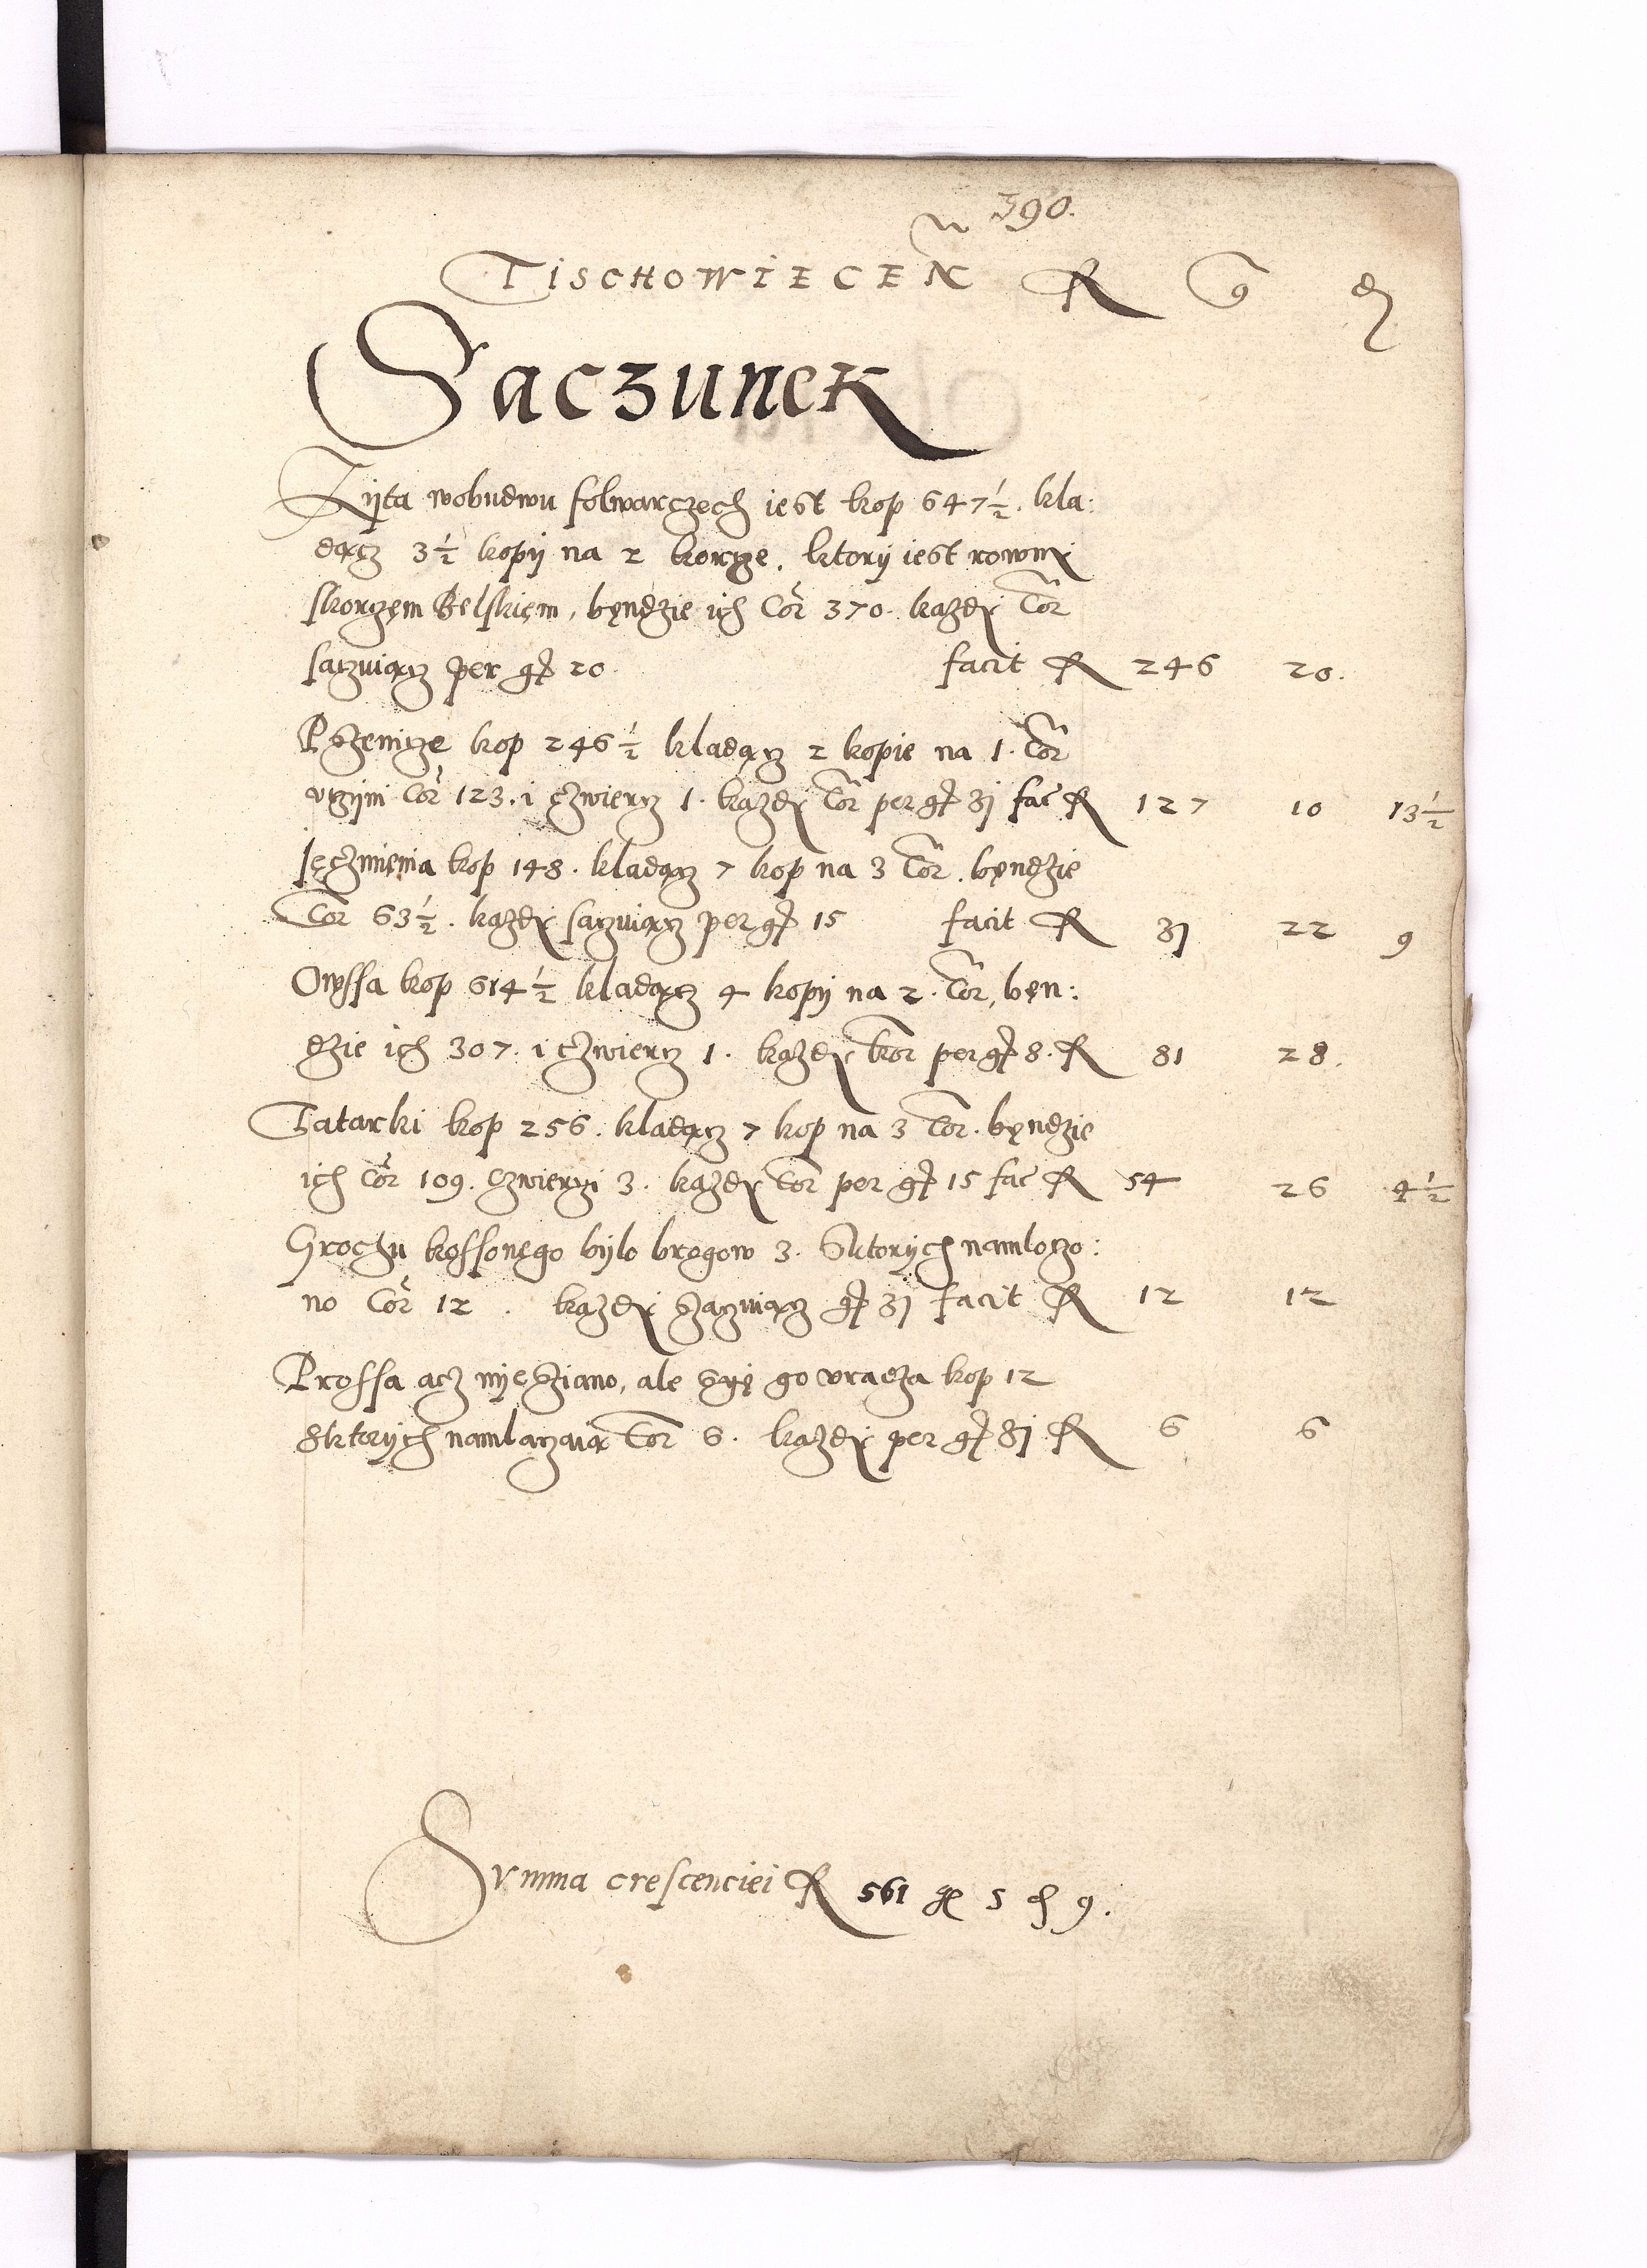 390.
TISCHOWIECEN̄ R G ₰
Saczunek
Zyta wobudwu folwarczech iest kop 647½. kla:
dącz 3½ kopy na 2 korcze, ktory iest rowny
skorczem Belskiem, bendzie ich Cor 370. kazdy Cor
saczuiącz per g 20. facit R 246 20.
Pszenicze kop 246½ kladącz 2 kopie na 1. Cor
uczyni Cor 123. i czwiercz 1. kazdy Cor per g 31 fac R 127 10 13½
Jęczmienia kop 148. kladącz 7 kop na 3 Cor. bendzie
Cor 63½. kazdy saczuiącz per g 15 facit R 31 22 9
Owssa kop 614½ kladącz 4 kopy na 2. Cor, ben:
dzie ich 307. i czwiercz 1. kazdy kor per g 8. R 81 28.
Tatarki kop 256. kladącz 7 kop na 3 Cor. bendzie
ich Cor 109. czwierczi 3. kazdy Cor per g 15 fac R 54 26 4½
Grochu kossonego bylo brogow 3. Sktorych namloczo:
no Cor 12. kazdy szaczuiącz g 31 facit R 12 12
Prossa acz nysziano, ale szię go vradza kop 12
Sktorych namlaczaią Cor 6. kazdy per g 31 R 6 6
Summa crescenciei R 561 g 5 ₰ 9.